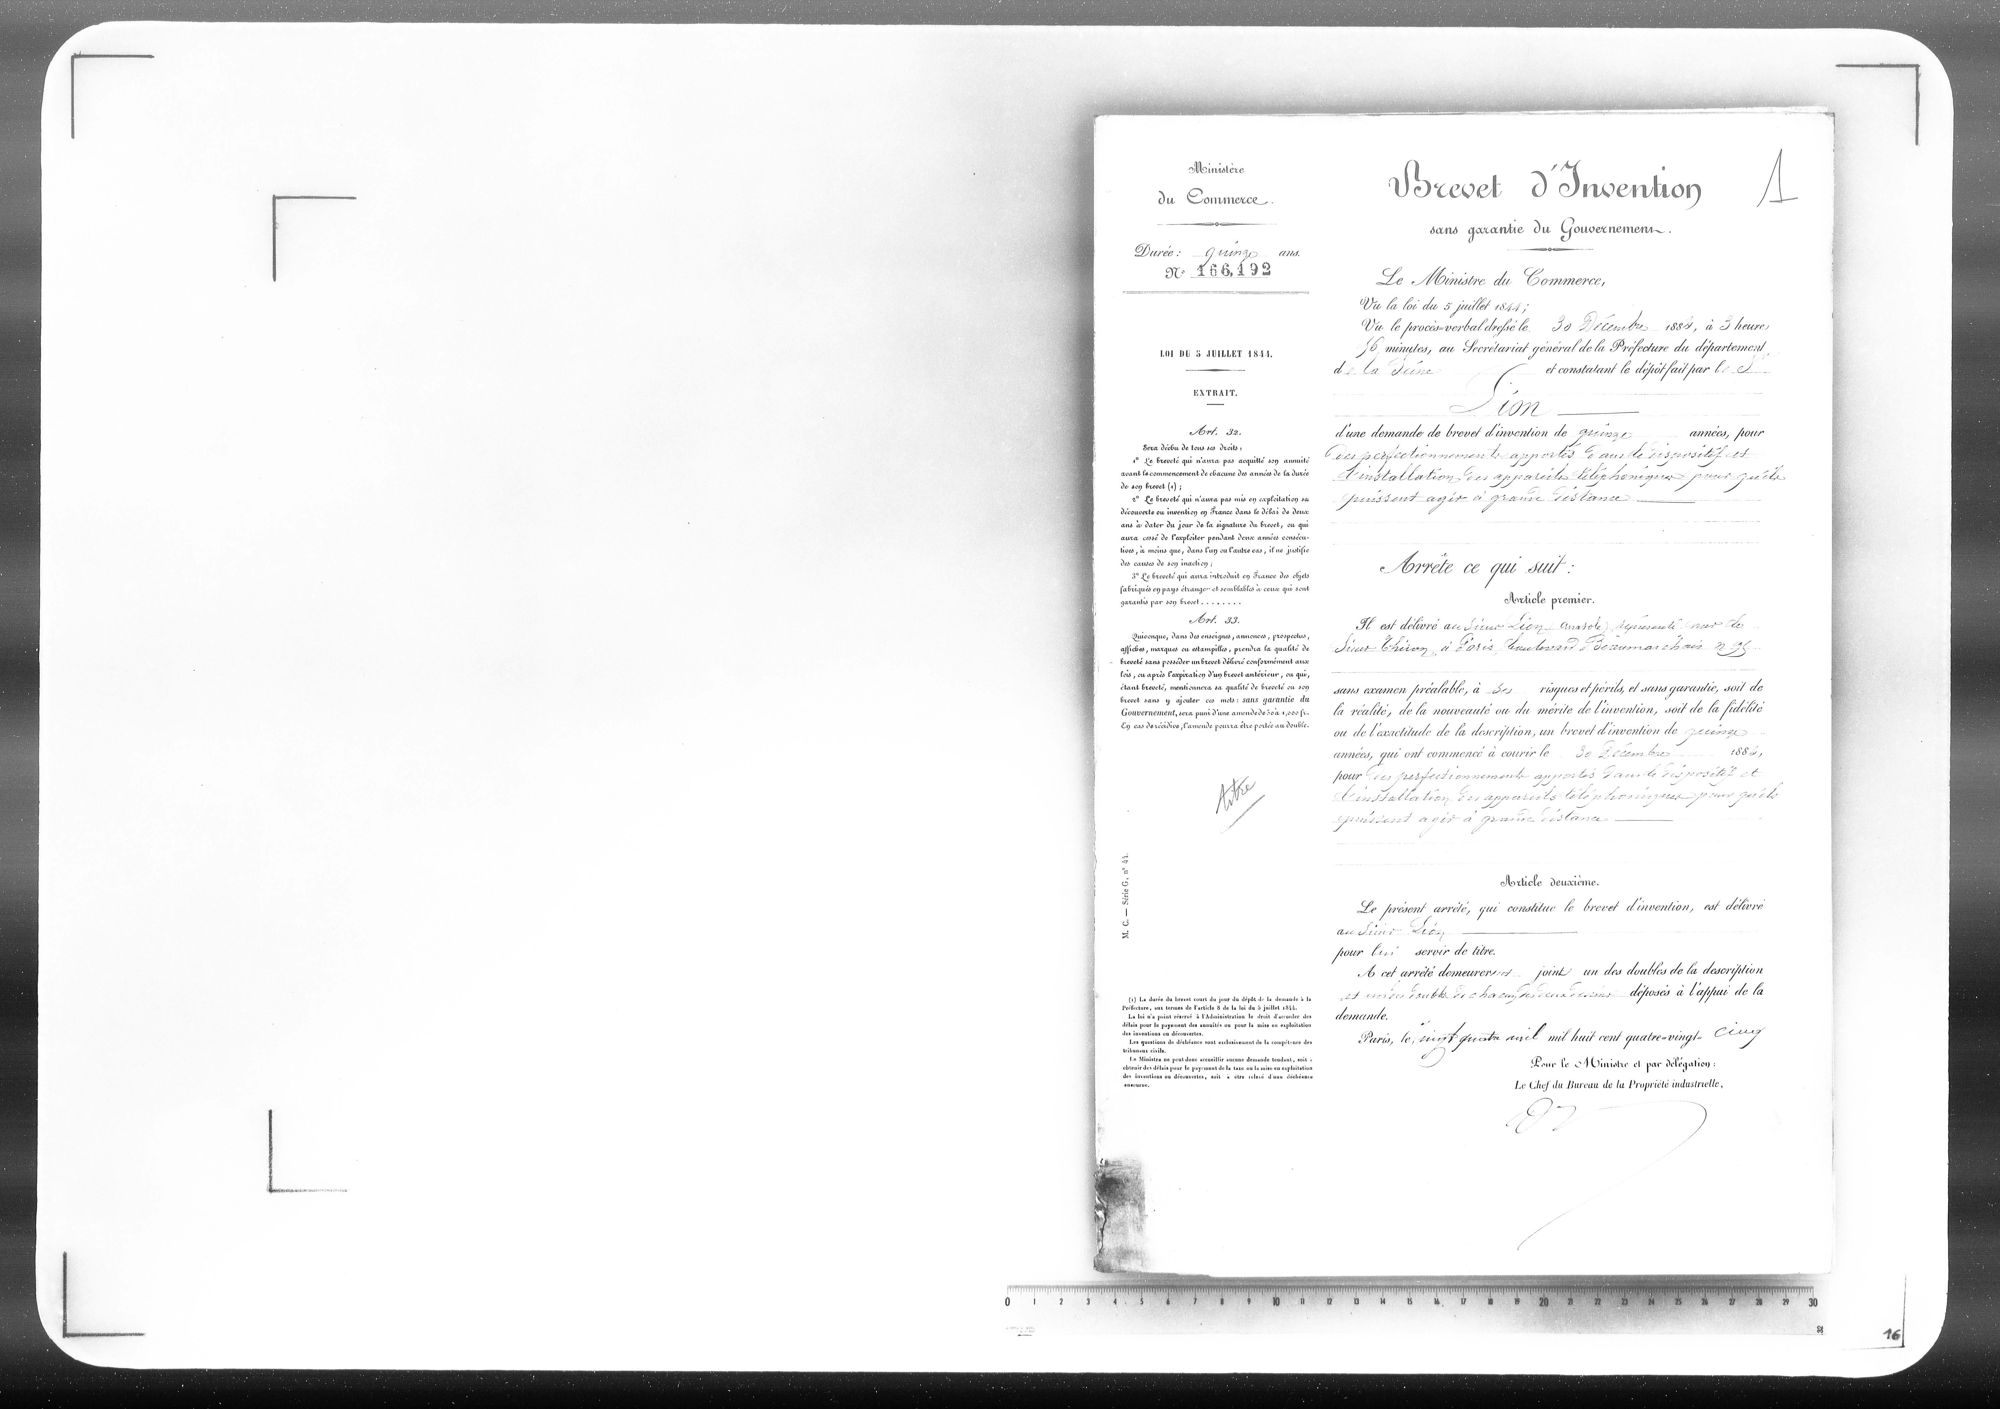 Ministère
du Commerce.
Durée : quinze ans.
N° 166,192
LOI DU 5 JUILLET 1844.
EXTRAIT.
Art. 32.
Sera déchu de tous ses droits :
1° Le breveté qui n'aura pas acquitté son annuité
avant le commencement de chacune des années de la durée
de son brevet (1) ;
2° Le breveté qui n'aura pas mis en exploitation sa
découverte ou invention en France dans le délai de deux
ans à dater du jour de la signature du brevet, ou qui
aura cessé de l'exploiter pendant deux années consécu-
tives, à moins que, dans l'un ou l'autre cas, il ne justifie
des causes de son inaction ;
3° Le breveté qui aura introduit en France des objets
fabriqués en pays étranger et semblables à ceux qui sont
garantis par son brevet . . . . . . . .
Art. 33.
Quiconque, dans des enseignes, annonces, prospectus,
affiches, marques ou estampilles, prendra la qualité de
breveté sans posséder un brevet délivré conformément aux
lois, ou après l'expiration d'un brevet antérieur, ou qui,
étant breveté, mentionnera sa qualité de breveté ou son
brevet sans y ajouter ces mots : sans garantie du
Gouvernement, sera puni d'une amende de 50 à 1,000 fr.
En cas de récidive, l'amende pourra être portée au double.
titre
M. C. — Série G, n° 44.
(1) La durée du brevet court du jour du dépôt de la demande à la
Préfecture, aux termes de l'article 8 de la loi du 5 juillet 1844.
La loi n'a point réservé à l'Administration le droit d'accorder des
délais pour le payement des annuités ou pour la mise en exploitation
des inventions ou découvertes.
Les questions de déchéance sont exclusivement de la compétence des
tribunaux civils.
Le Ministre ne peut donc accueillir aucune demande tendant, soit à
obtenir des délais pour le payement de la taxe ou la mise en exploitation
des inventions ou découvertes, soit à être relevé d'une déchéance
encourue.
Brevet d'Invention
1
sans garantie du Gouvernement.
Le Ministre du Commerce,
Vu la loi du 5 juillet 1844 ;
Vu le procès-verbal dressé le 30 Décembre 1884, à 3 heures
minutes, au Secrétariat général de la Préfecture du département
de la Seine et constatant le dépôt fait par le S.
Lion
d'une demande de brevet d'invention de quinze années, pour
des perfectionnements apportés dans le dispositif et
l'installation des appareils téléphoniques pour qu'ils
puissent agir à grande distance
Arrête ce qui suit :
Article premier.
Il est délivré au Sieur Lion représenté par le
Sieur Thirion, à Paris, boulevard Beaumarchais n° 95
sans examen préalable, à ses risques et périls, et sans garantie, soit de
la réalité, de la nouveauté ou du mérite de l'invention, soit de la fidélité
ou de l'exactitude de la description, un brevet d'invention de quinze
années, qui ont commencé à courir le 30 Décembre 1884,
pour des perfectionnements apportés dans le dispositif et
l'installation des appareils téléphoniques pour qu'ils
puissent agir à grande distance
Article deuxième.
Le présent arrêté, qui constitue le brevet d'invention, est délivré
au Sieur Lion
pour lui servir de titre.
A cet arrêté demeurera joint un des doubles de la description
et un des doubles de chacun des deux dessins déposés à l'appui de la
demande.
Paris, le vingt quatre avril mil huit cent quatre-vingt-cinq
Pour le Ministre et par délégation :
Le Chef du Bureau de la Propriété industrielle,
0 1 2 3 4 5 6 7 8 9 10 11 12 13 14 15 16 17 18 19 20 21 22 23 24 25 26 27 28 29 30
16